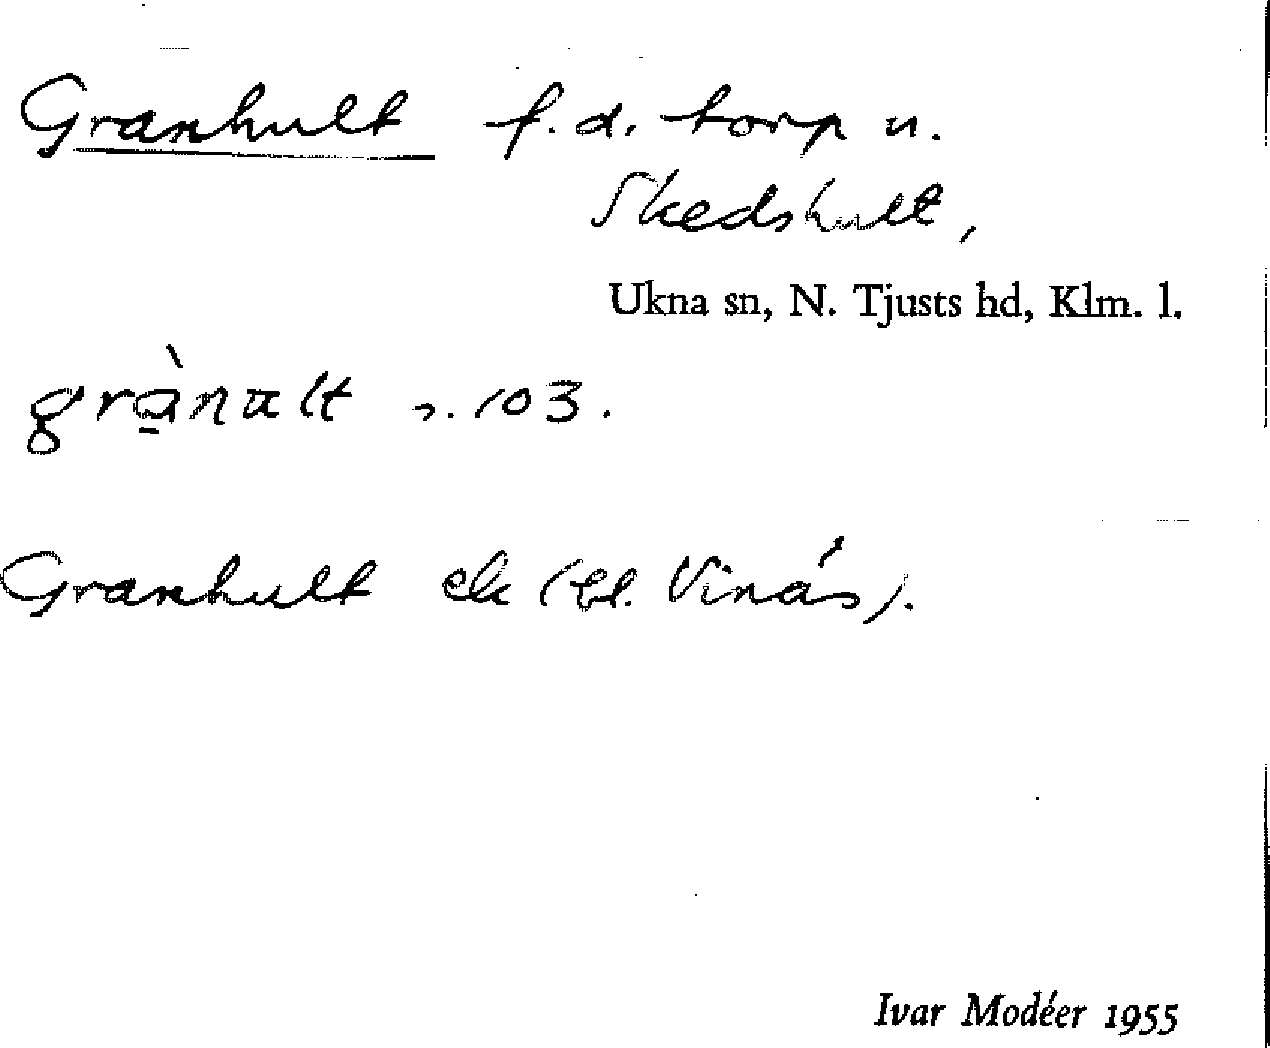 Granhult f.d. torp u.
Skedshult,
Ukna sn, N. Tjusts hd, Klm. l.
grànalt s. 103.
Granhult ek (bl. Vinås).
Ivar Modéer 1955